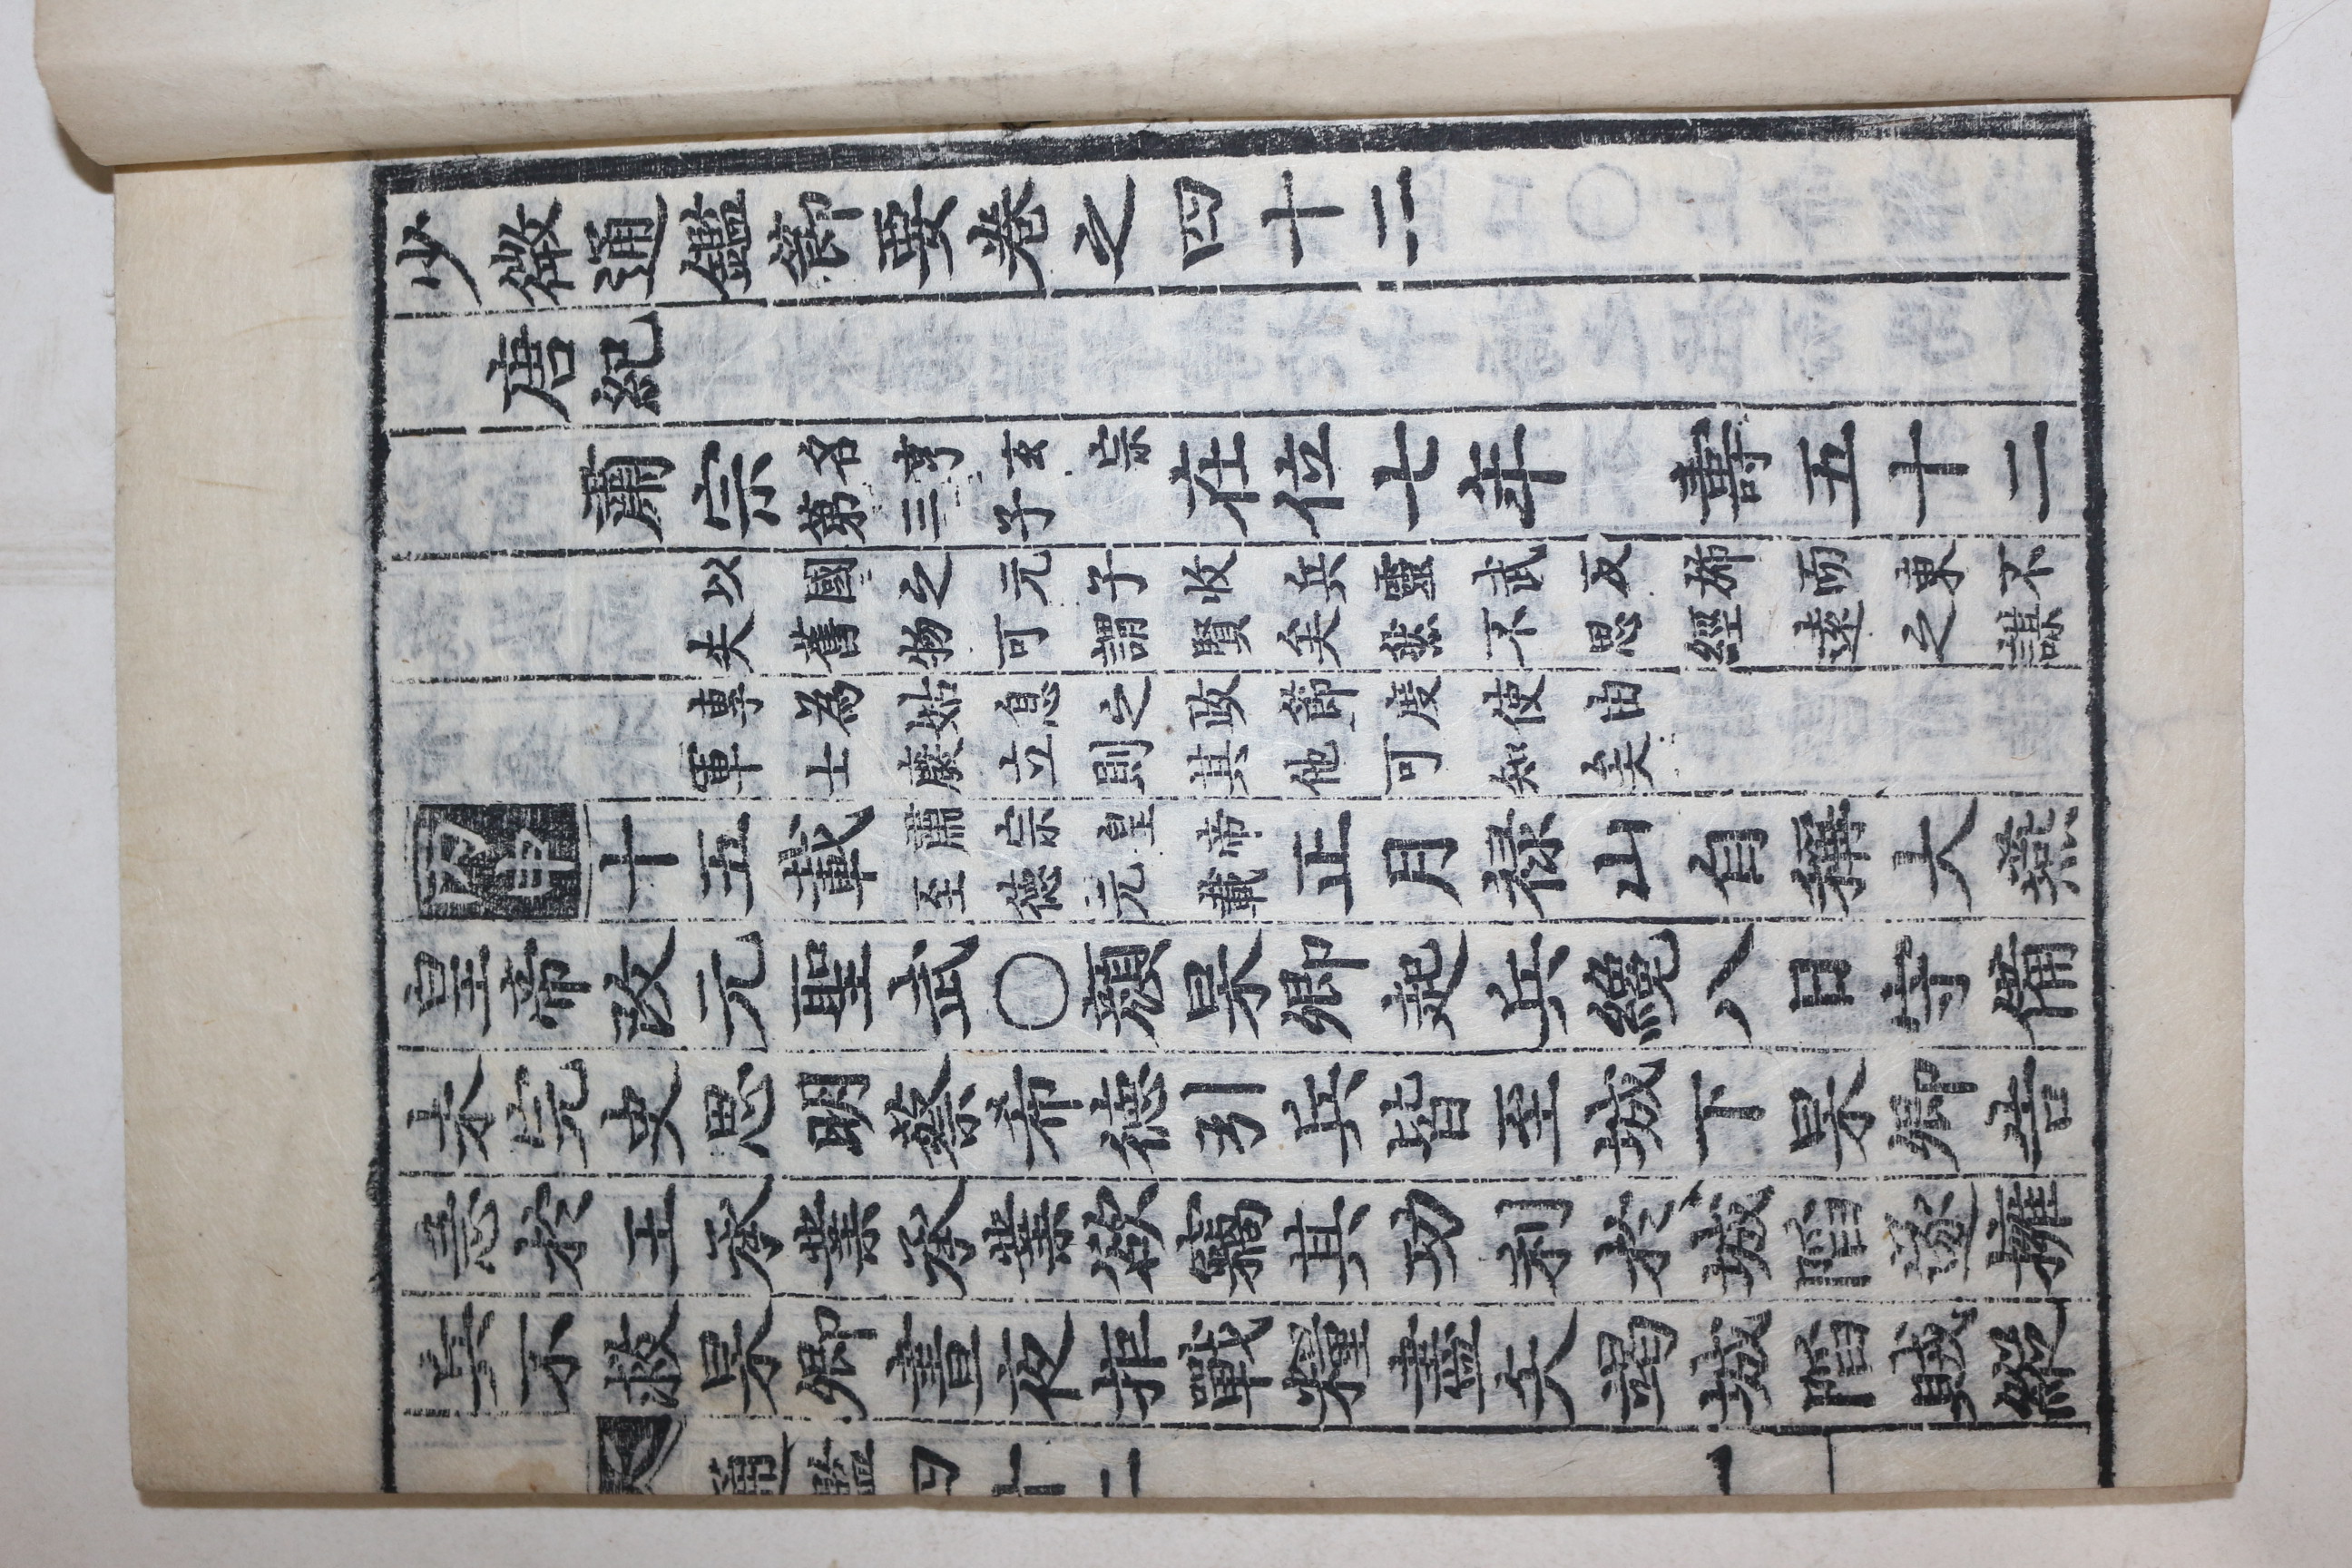 少微通鑑節要卷之四十二
唐紀
肅宗名亨玄宗第三子在位七年 壽五十二
以國之元子收兵靈武反斾而東不
失舊物可謂賢矣然不思經遠之謀
專為姑息之政節度使由
軍士廢立則其他可知矣
丙申十五載肅宗皇帝至德元載正月禄山自稱大燕
皇帝改元聖武○顔杲卿起兵纔八日守備
未完史思明蔡希德引兵皆至城下杲卿告
急於王承業承業欲竊其功利於城陷遂擁
兵不救杲卿晝夜拒戰糧盡矢竭城陷賊縱
通鑑四十二 一